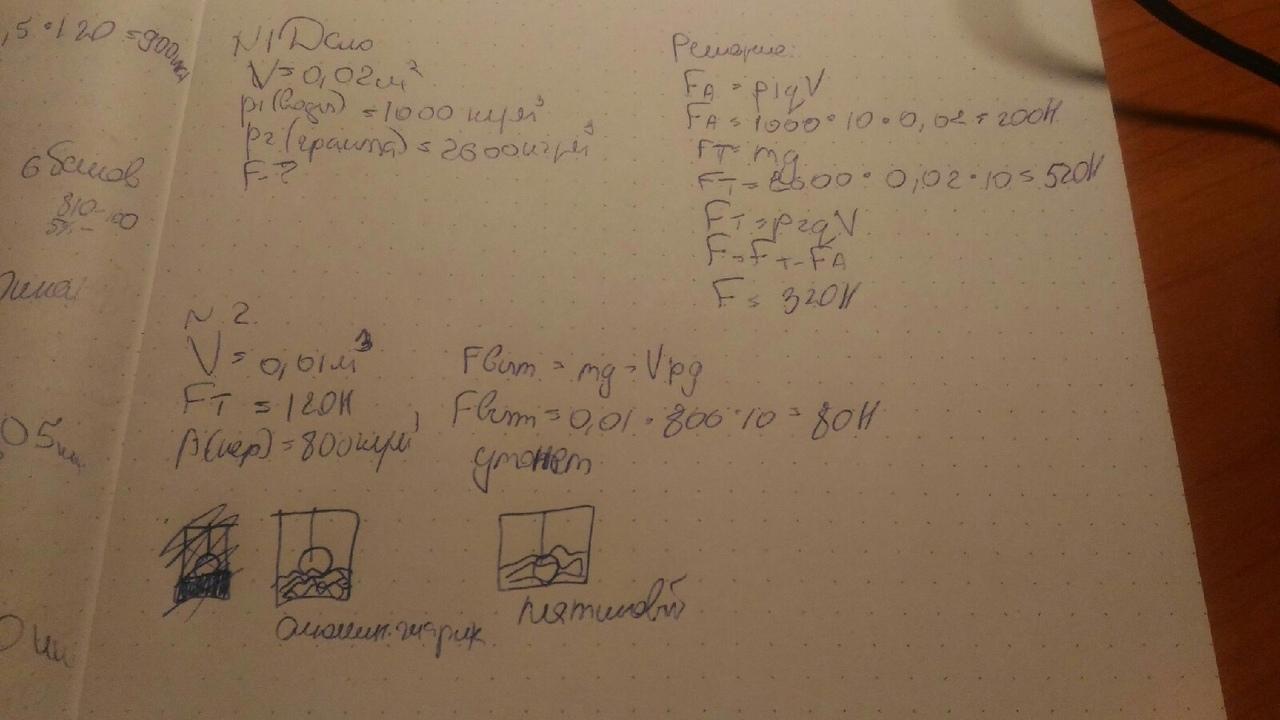 ,5•120=900
N1 Дано
V=0,02м²
p1(воды) =1000 кг/м³
p2(гранита) = 2600кг/м³
F-?
Решение:
FA = p1gV
FA = 1000•10•0,02 = 200Н
FT= mg
FT= 2600• 0,02•10= 520Н
FT = p2gV
F=FT-FA
F= 320Н
6 балов
810-100
05
N 2.
V= 0,01м³
FT = 120Н
p(кер) = 800кг/м³
Fвыт = mg = Vpg
Fвыт=0,01•800•10=80Н
утонет
Алюмин. шарик
Платиновый